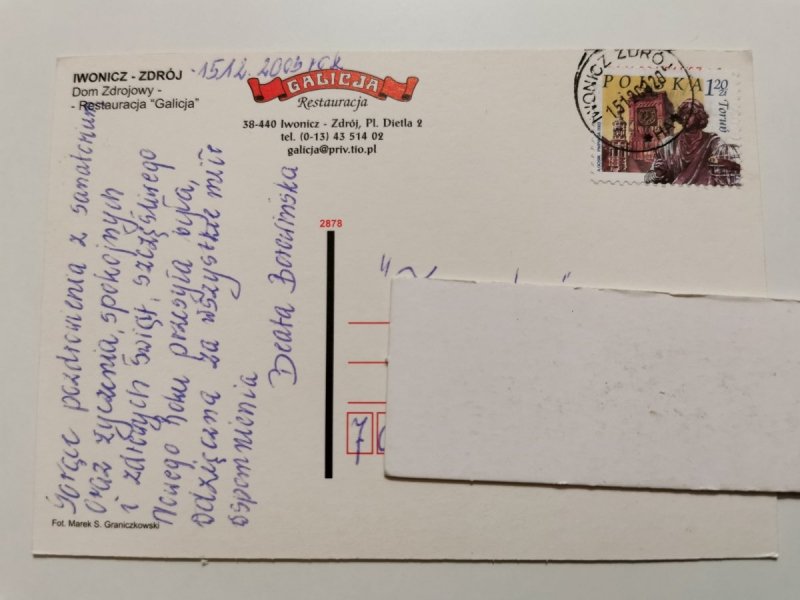 IWONICZ - ZDRÓJ
Dom Zdrojowy -
- Restauracja "Galicja"
15.12. 2003 rok
GALICJA
Restauracja
38-440 Iwonicz - Zdrój, Pl. Dietla 2
tel. (0-13) 43 514 02
galicja@priv.tio.pl
IWONICZ ZDRÓJ
POLSKA 120 zł
Toruń
Gorące pozdrowienia z sanatorium
oraz życzenia, spokojnych
i zdrowych Świąt, szczęśliwego
Nowego Roku przesyła była,
wdzięczna za wszystkie miłe
wspomnienia
Beata
2878
7
Fot. Marek S. Graniczkowski